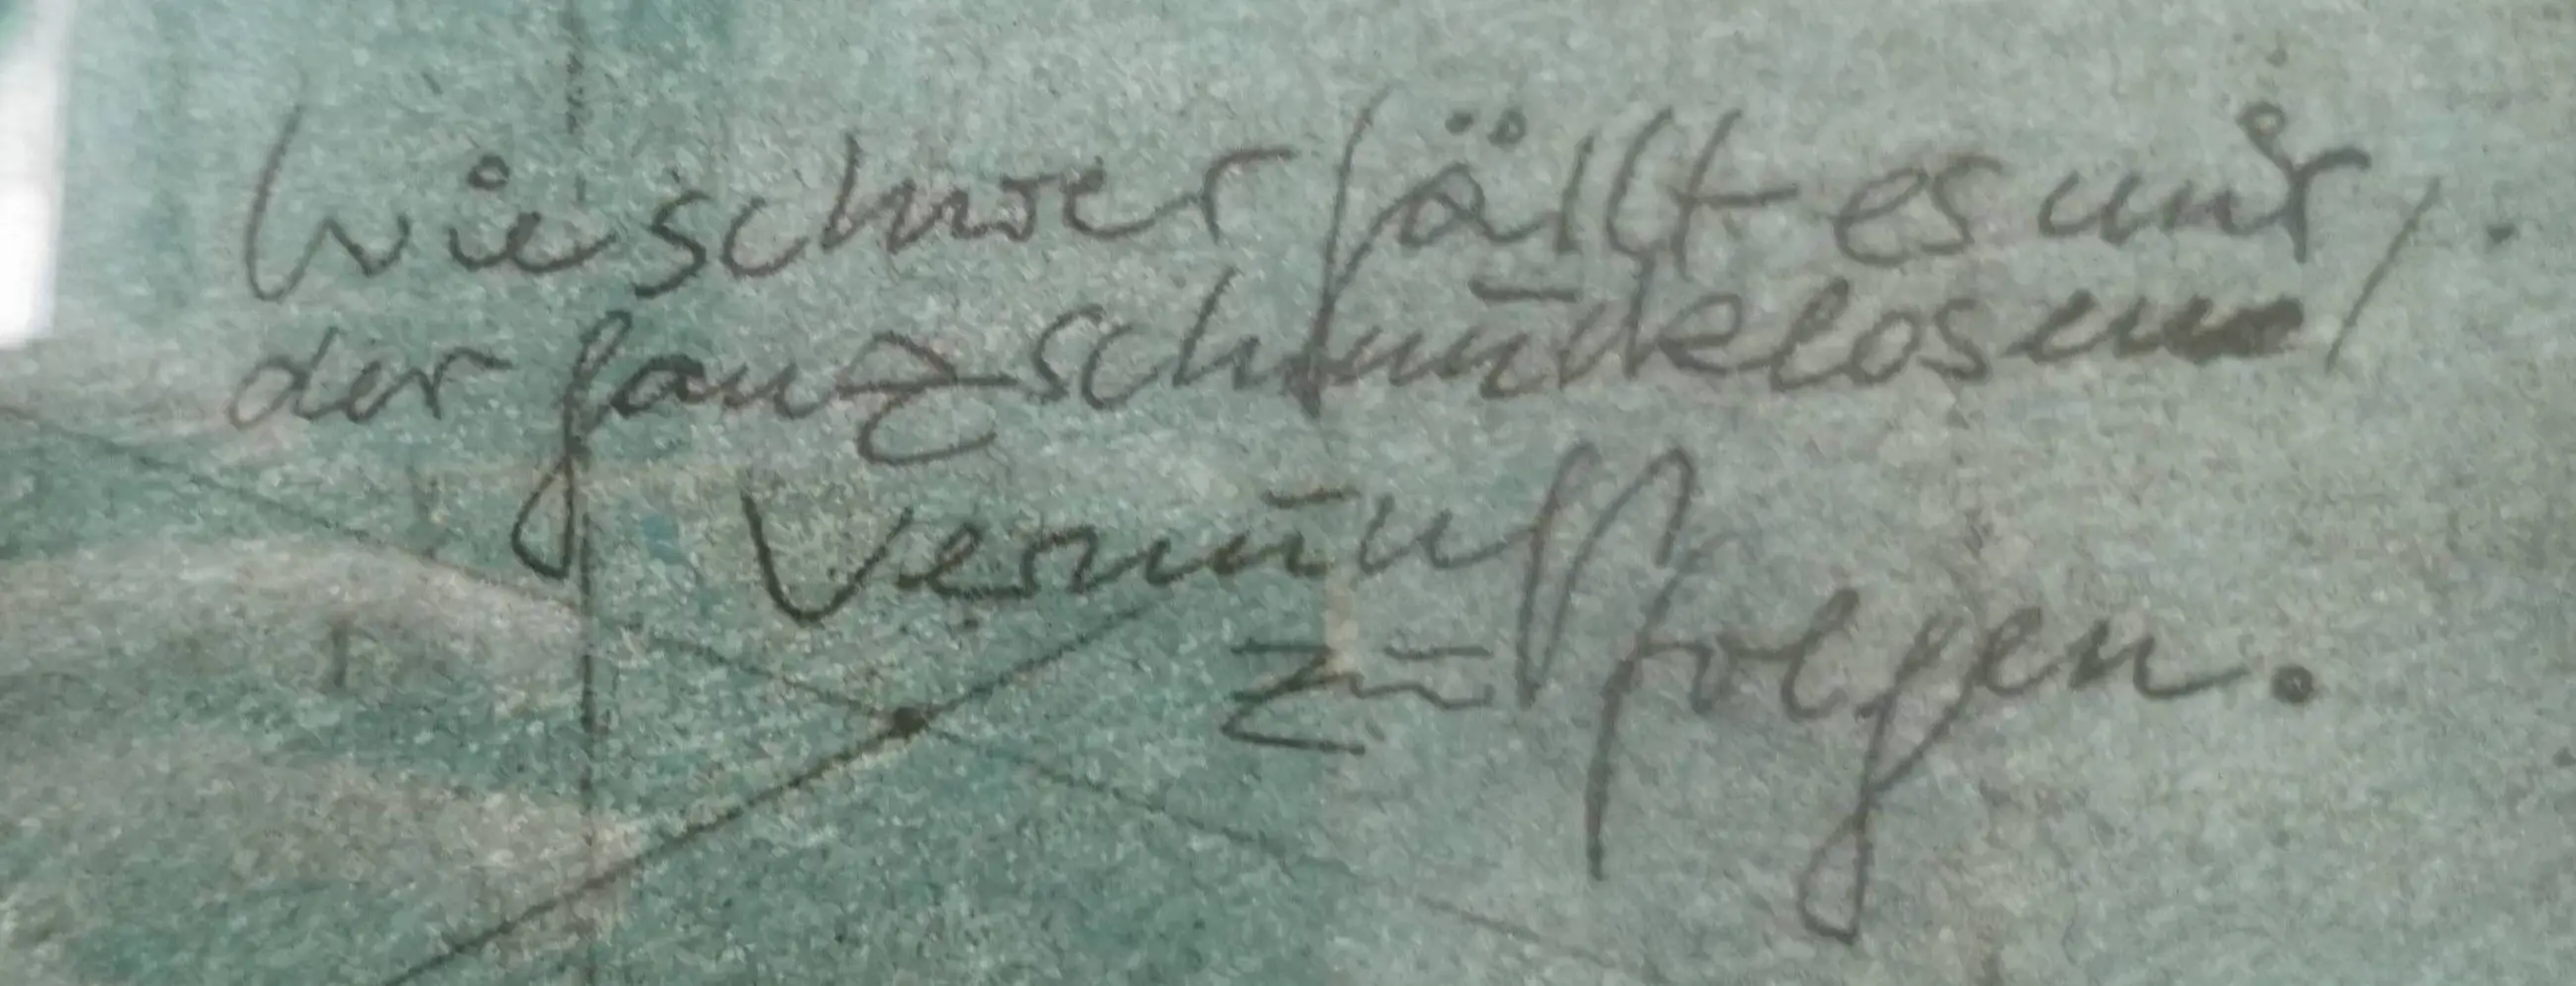 Wie schwer fällt es mir,
der ganz schmucklosen
Vernunft
zu folgen.